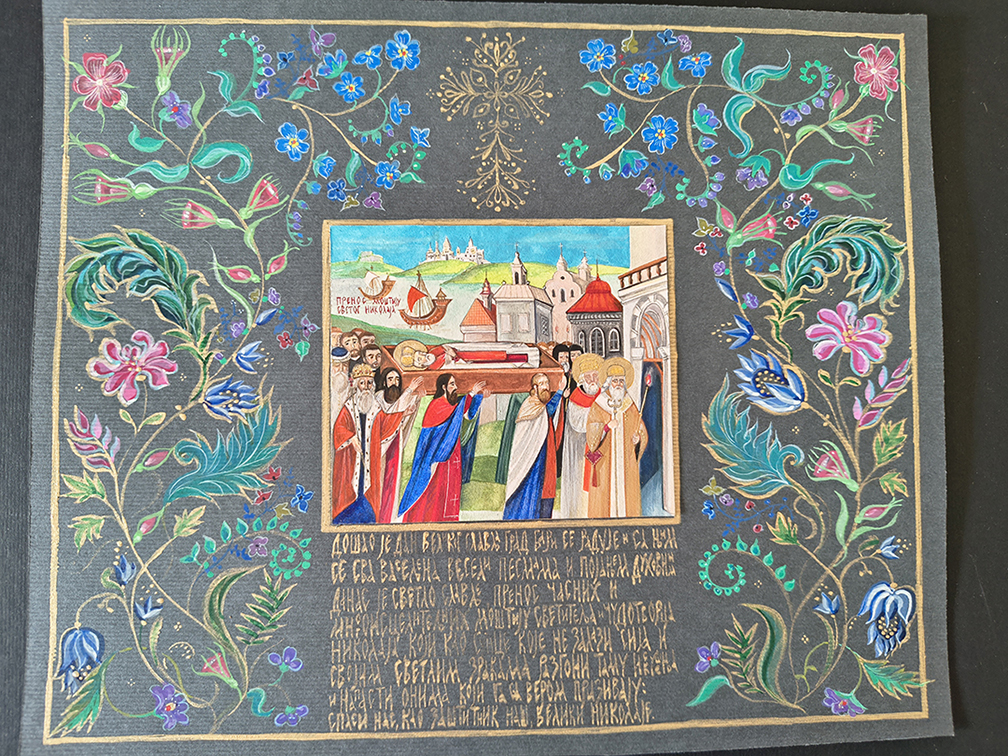 ПРЕНОС МОШТИЈУ
СВЕТОГ НИКОЛАЈА
ДОШАО ЈЕ ДАН ВЕЛИКЕ СЛАВЕ ГРАД БАРИ СЕ РАДУЈЕ И СА ЊИМ
СЕ СВА ВАСЕЛЕНА ВЕСЕЛИ ПЕСМАМА И ПОЈАЊЕМ ДУХОВНИМ
ДАНАС ЈЕ СВЕТЛО СЛАВЉЕ ПРЕНОС ЧАСНИХ И
МОШТИЈУ СВЕТИТЕЉА И ЧУДОТВОРЦА
НИКОЛАЈА КОЈИ КАО СУНЦЕ КОЈЕ НЕ ЗАЛАЗИ СИЈА И
СВОЈИМ СВЕТЛИМ ЗРАКАМА РАЗГОНИ ТАМУ НЕВЕЋА
И НАПАСТИ ОНИМА КОЈИ ГА СА ВЕРОМ ПРИЗИВАЈУ:
СПАСИ НАС, КАО ЗАШТИТНИК НАШ, ВЕЛИКИ НИКОЛАЈЕ.